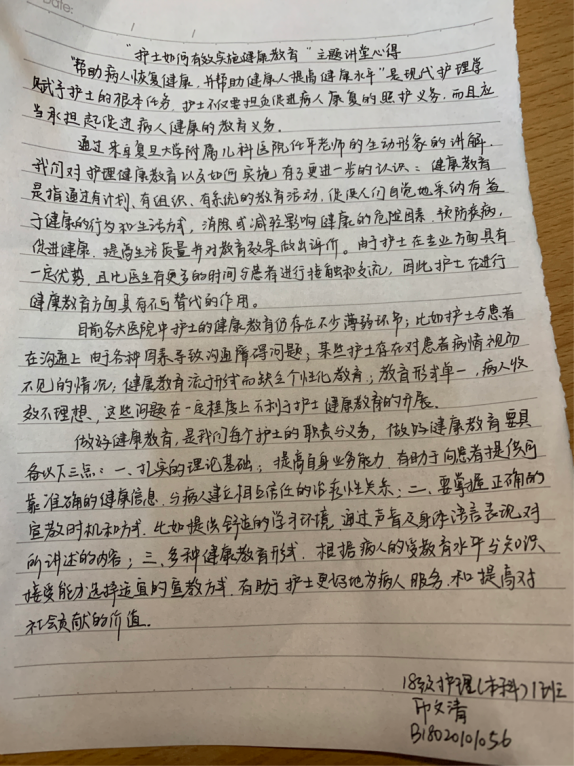 Date:
"护士如何有效实施健康教育"主题讲堂心得
"帮助病人恢复健康,并帮助健康人提高健康水平"是现代护理学
赋予护士的根本任务。护士不仅要担负促进病人康复的照护义务,而且应
当承担起促进病人健康的教育义务。
通过来自复旦大学附属儿科医院任平老师的生动形象的讲解,
我们对护理健康教育以及如何实施有了更进一步的认识:健康教育
是指通过有计划、有组织、有系统的教育活动,促使人们自觉地采纳有益
于健康的行为和生活方式,消除或减轻影响健康的危险因素,预防疾病,
促进健康,提高生活质量并对教育效果做出评价。由于护士在专业方面具有
一定优势,且比医生有更多的时间与患者进行接触和交流,因此护士在进行
健康教育方面具有不可替代的作用。
目前各大医院中护士的健康教育仍存在不少薄弱环节:比如护士与患者
在沟通上由于各种因素导致沟通障碍问题;某些护士存在对患者病情视而
不见的情况;健康教育流于形式而缺乏个性化教育;教育形式单一,病人收
效不理想,这些问题在一定程度上不利于护士健康教育的开展。
做好健康教育,是我们每个护士的职责与义务,做好健康教育要具
备以下三点:一、扎实的理论基础;提高自身业务能力,有助于向患者提供可
靠准确的健康信息,与病人建立相互信任的治疗性关系;二、要掌握正确的
宣教时机和方式,比如提供舒适的学习环境,通过声音及身体语言表现对
所讲述的内容;三、多种健康教育形式,根据病人的受教育水平与知识、
接受能力选择适宜的宣教方式,有助于护士更好地为病人服务,和提高对
社会贡献的价值。
18级护理(本科)1班
印文清
B18020101056